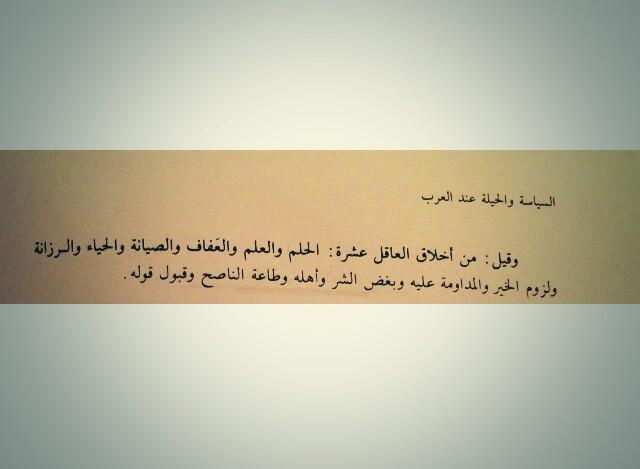 السياسة والحيلة عند العرب
وقيل: من أخلاق العاقل عشرة: الحلم والعلم والعَفاف والصيانة والحياء والرزانة
ولزوم الخير والمداومة عليه وبغض الشر وأهله وطاعة الناصح وقبول قوله.